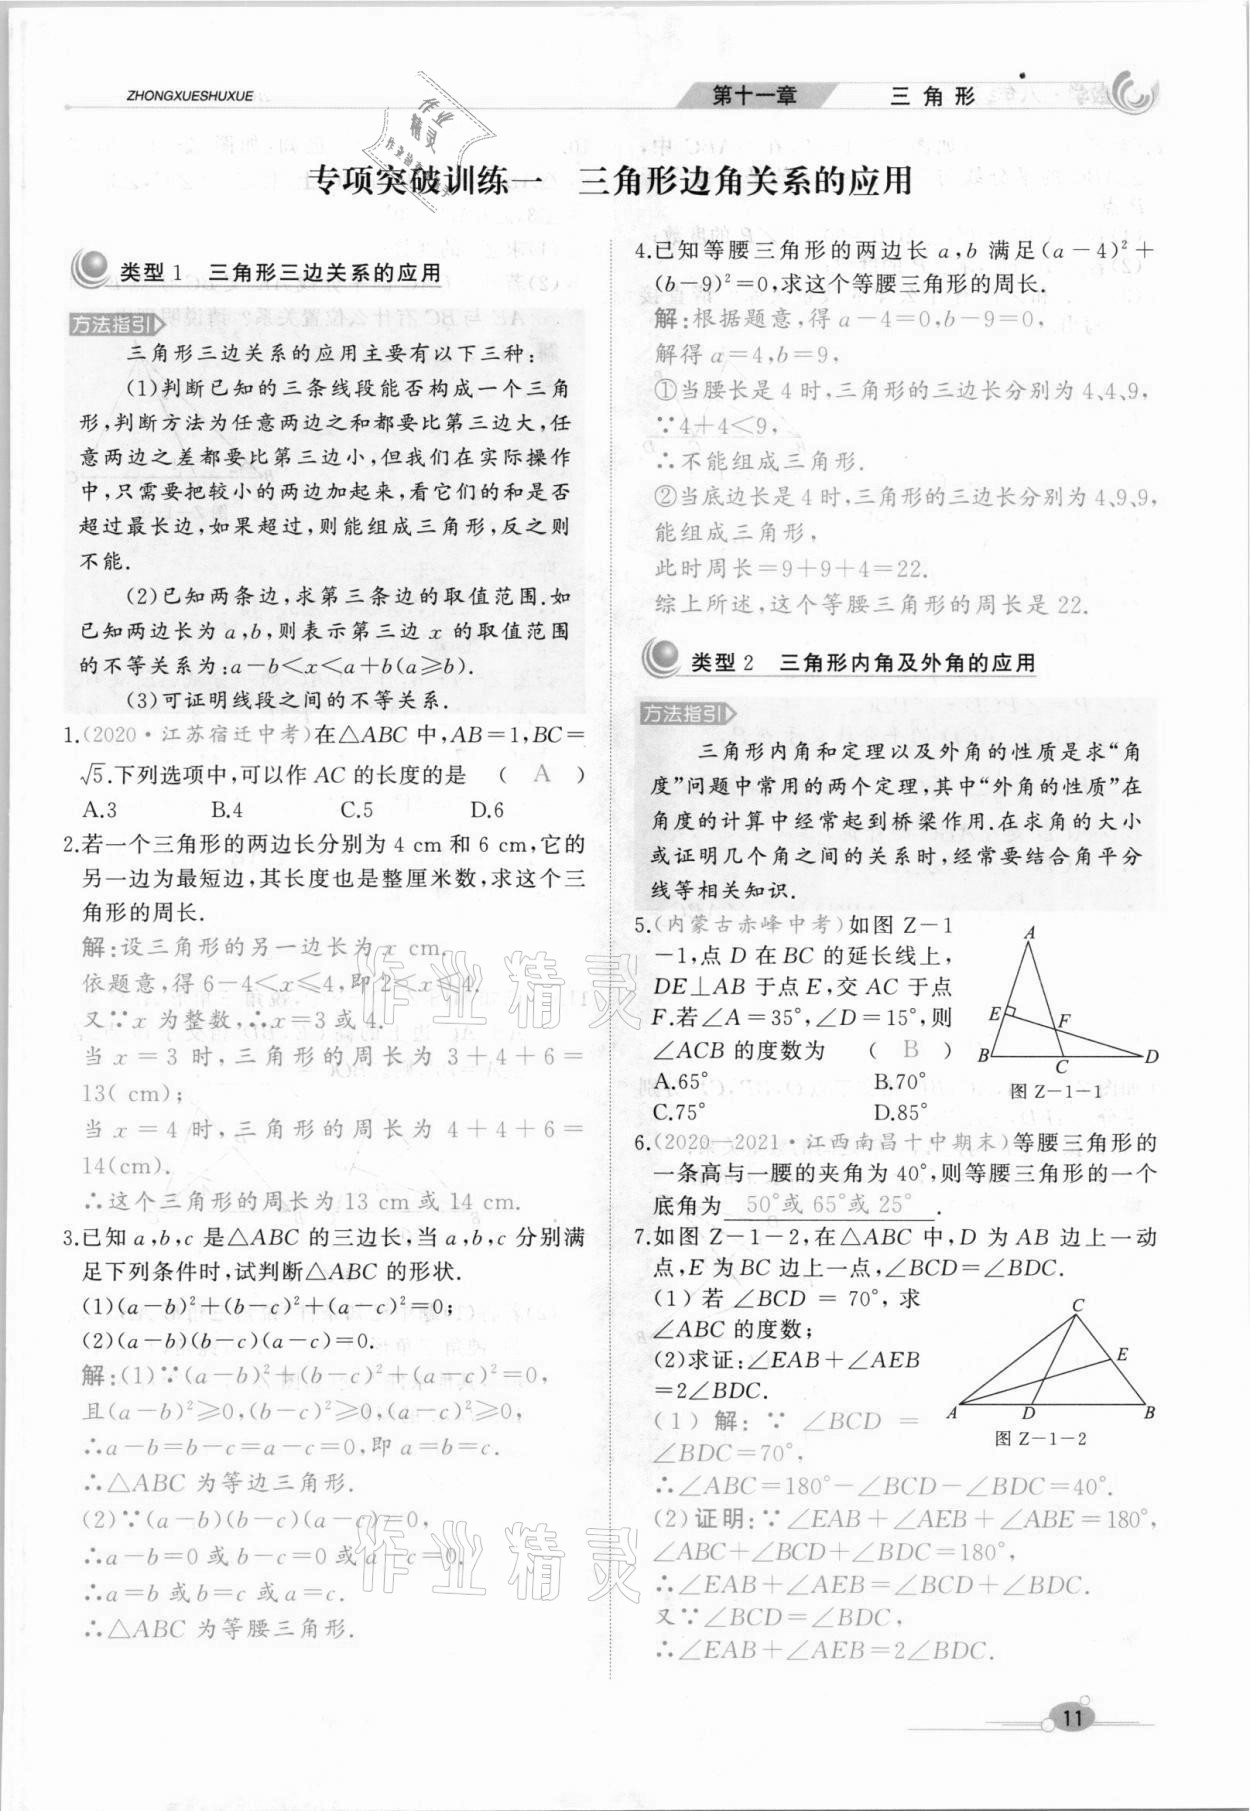 ZHONGXUESHUXUE
第十一章 三角形
专项突破训练一 三角形边角关系的应用
类型1 三角形三边关系的应用
方法指引
三角形三边关系的应用主要有以下三种:
(1)判断已知的三条线段能否构成一个三角
形,判断方法为任意两边之和都要比第三边大,任
意两边之差都要比第三边小,但我们在实际操作
中,只需要把较小的两边加起来,看它们的和是否
超过最长边,如果超过,则能组成三角形,反之则
不能.
(2)已知两条边,求第三条边的取值范围.如
已知两边长为a,b,则表示第三边x的取值范围
的不等关系为:a-b<x<a+b(a≥b).
(3)可证明线段之间的不等关系.
1.(2020·江苏宿迁中考)在△ABC中,AB=1,BC=
√5.下列选项中,可以作AC的长度的是 ( A )
A.3 B.4 C.5 D.6
2.若一个三角形的两边长分别为4 cm和6 cm,它的
另一边为最短边,其长度也是整厘米数,求这个三
角形的周长.
解:设三角形的另一边长为x cm.
依题意,得6-4<x≤4,即2<x≤4.
又∵x为整数,∴x=3或4.
当x=3时,三角形的周长为3+4+6=
13(cm);
当x=4时,三角形的周长为4+4+6=
14(cm).
∴这个三角形的周长为13 cm或14 cm.
3.已知a,b,c是△ABC的三边长,当a,b,c分别满
足下列条件时,试判断△ABC的形状.
(1)(a-b)²+(b-c)²+(a-c)²=0;
(2)(a-b)(b-c)(a-c)=0.
解:(1)∵(a-b)²+(b-c)²+(a-c)²=0,
且(a-b)²≥0,(b-c)²≥0,(a-c)²≥0,
∴a-b=b-c=a-c=0,即a=b=c.
∴△ABC为等边三角形.
(2)∵(a-b)(b-c)(a-c)=0,
∴a-b=0或b-c=0或a-c=0.
∴a=b或b=c或a=c.
∴△ABC为等腰三角形.
4.已知等腰三角形的两边长a,b满足(a-4)²+
(b-9)²=0,求这个等腰三角形的周长.
解:根据题意,得a-4=0,b-9=0,
解得a=4,b=9,
①当腰长是4时,三角形的三边长分别为4、4、9,
∵4+4<9,
∴不能组成三角形.
②当底边长是4时,三角形的三边长分别为4、9、9,
能组成三角形,
此时周长=9+9+4=22.
综上所述,这个等腰三角形的周长是22.
类型2 三角形内角及外角的应用
方法指引
三角形内角和定理以及外角的性质是求“角
度”问题中常用的两个定理,其中“外角的性质”在
角度的计算中经常起到桥梁作用.在求角的大小
或证明几个角之间的关系时,经常要结合角平分
线等相关知识.
5.(内蒙古赤峰中考)如图Z-1
-1,点D在BC的延长线上,
DE⊥AB于点E,交AC于点
F.若∠A=35°,∠D=15°,则
∠ACB的度数为 ( B )
A.65° B.70°
C.75° D.85°
A
E
F
B
C
D
图Z-1-1
6.(2020—2021·江西南昌十中期末)等腰三角形的
一条高与一腰的夹角为40°,则等腰三角形的一个
底角为 50°或65°或25° .
7.如图Z-1-2,在△ABC中,D为AB边上一动
点,E为BC边上一点,∠BCD=∠BDC.
(1)若∠BCD=70°,求
∠ABC的度数;
(2)求证:∠EAB+∠AEB
=2∠BDC.
C
E
A
D
B
图Z-1-2
(1)解:∵∠BCD=
∠BDC=70°,
∴∠ABC=180°-∠BCD-∠BDC=40°.
(2)证明:∵∠EAB+∠AEB+∠ABE=180°,
∠ABC+∠BCD+∠BDC=180°,
∴∠EAB+∠AEB=∠BCD+∠BDC.
又∵∠BCD=∠BDC,
∴∠EAB+∠AEB=2∠BDC.
作业精灵
作业精灵
作业精灵
11